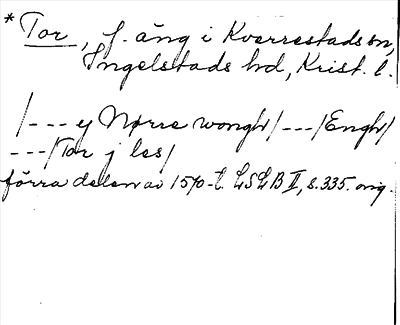 * Tor, f. äng i Kverrestads sn,
Ingelstads hd, Krist. l.
/--- ej Nørre wongh/---/Engh/
---/Tor j les/
förra delen av 1570-t. LSLB II, s. 335. orig.